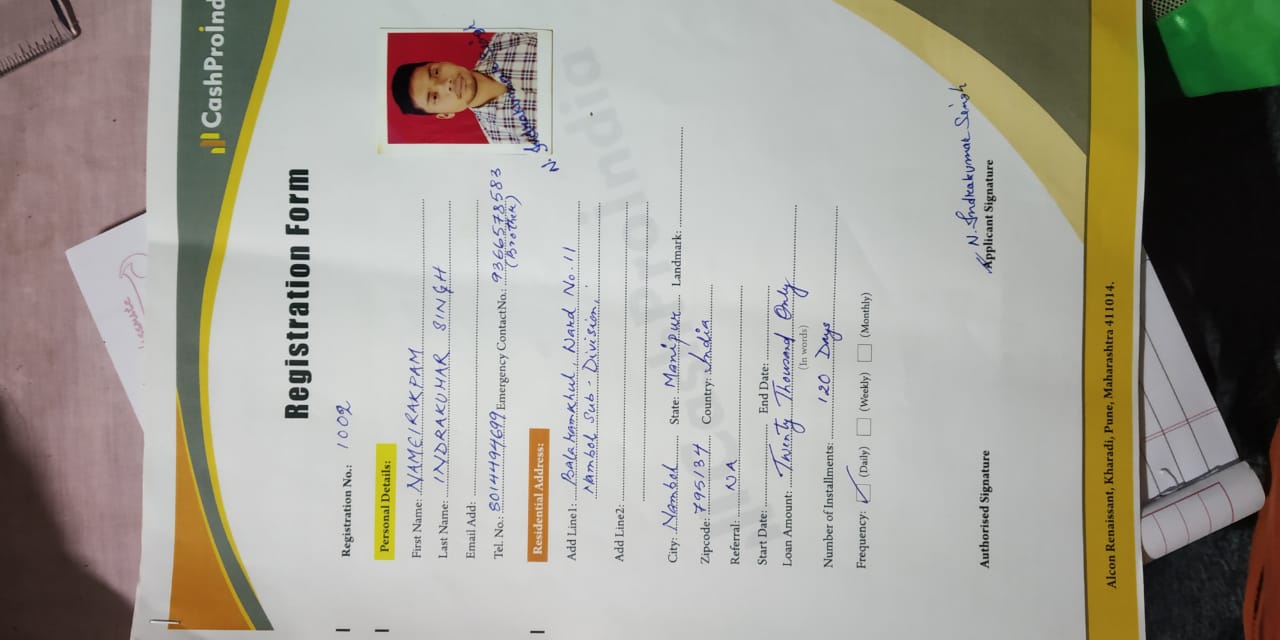 CashProInd
Registration Form
Registration No.: 1002
Personal Details:
First Name: NAMEIRAKPAM
Last Name: INDRAKUMAR SINGH
Email Add:
Tel. No.: 8014494699 Emergency Contact No.: 9366578583
(Brother)
N. Indrakumar Singh
Residential Address:
Add Line1: Balaramkhul, Ward No. 11
Nambol Sub-Division,
Add Line2:
City: Nambol State: Manipur Landmark:
Zipcode: 795134 Country: India
Referral: NA
Start Date: End Date:
Loan Amount: Twenty Thousand Only
(In words)
Number of Installments: 120 Days
Frequency: (Daily) (Weekly) (Monthly)
N. Indrakumar Singh
Authorised Signature Applicant Signature
Alcon Renaissant, Kharadi, Pune, Maharashtra 411014.